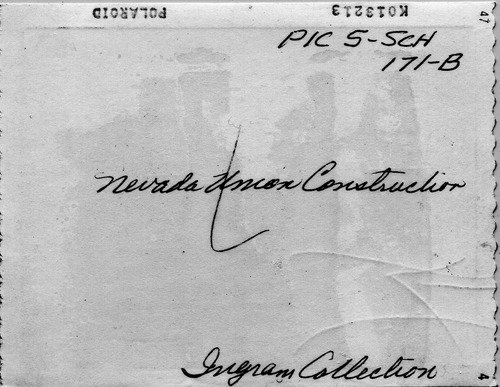 POLAROID K013213
47
PIC 5-SCH
171-B
Nevada Union Construction
Ingram Collection
4